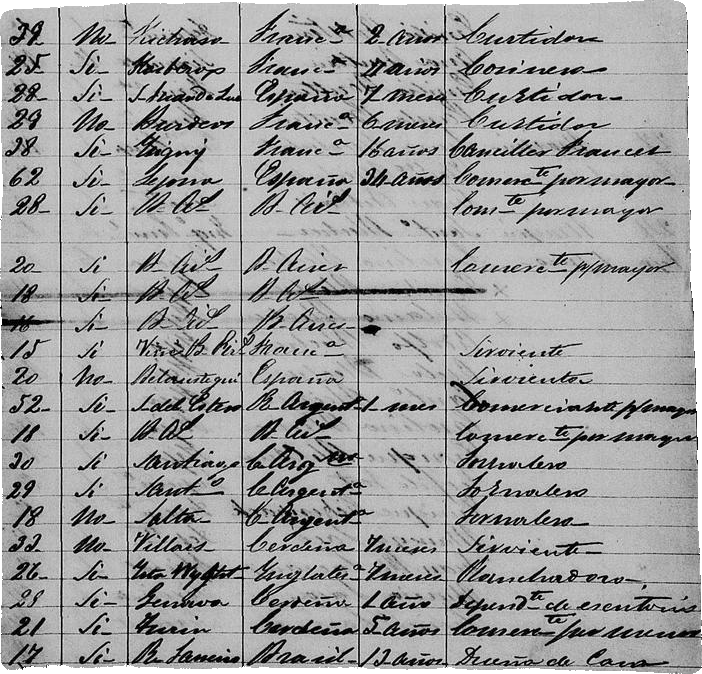 39 No Franc.a 2 años Curtidor
25 Si Franc.a 4 años Cosinero
28 Si S. Juan de Luz España 7 meses Curtidor
29 No Burdeos Franc.a 6 meses Curtidor
38 Si Franc.a 16 años Canciller Frances
62 Si España 34 años Comerc.te por mayor
28 Si B. Ai.s B. Ai.s Com.te por mayor
20 Si B. Ai.s B. Aires Comerc.te p/mayor
18 Si B. A.s B. A.s
16 Si B. Ai.s B. Aires
15 Si Franc.a Sirviente
20 No España Sirvienta
52 Si S. del Estero R. Argent. 1 mes Comerciante p/mayor
18 Si B. A.s B. Ai.s Comerc.te por mayor
30 Si Santiago C. Arg.na Jornalero
29 Si Sant.o C. Argent.a Jornalero
18 No Salta C. Argent.a Jornalero
33 No Cerdeña 7 meses Sirviente
26 Si Inglater.a 7 meses Planchadora
23 Si Genova Cerdeña 1 año Depend.te de escritorio
21 Si Turin Cerdeña 5 años Comerc.te por menor
17 Si R. Janeiro Brasil 13 años Dueña de Casa